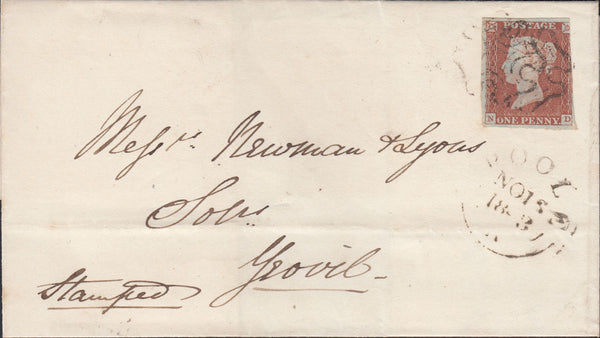 POSTAGE
N D
ONE PENNY
Mess.rs Newman & Lyons
Solrs
Yeovil
Stamped
POOL
NO 13
18 3